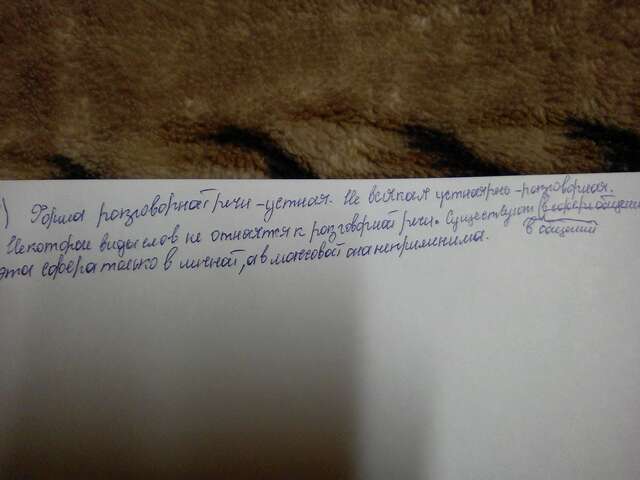 ) Форма разговорной речи - устная. Не всякая устная речь - разговорная.
Некоторые виды слов не относятся к разговорной речи. Существует в сфере общения
в общении
эта сфера только в личной, а в массовой она неприменима.